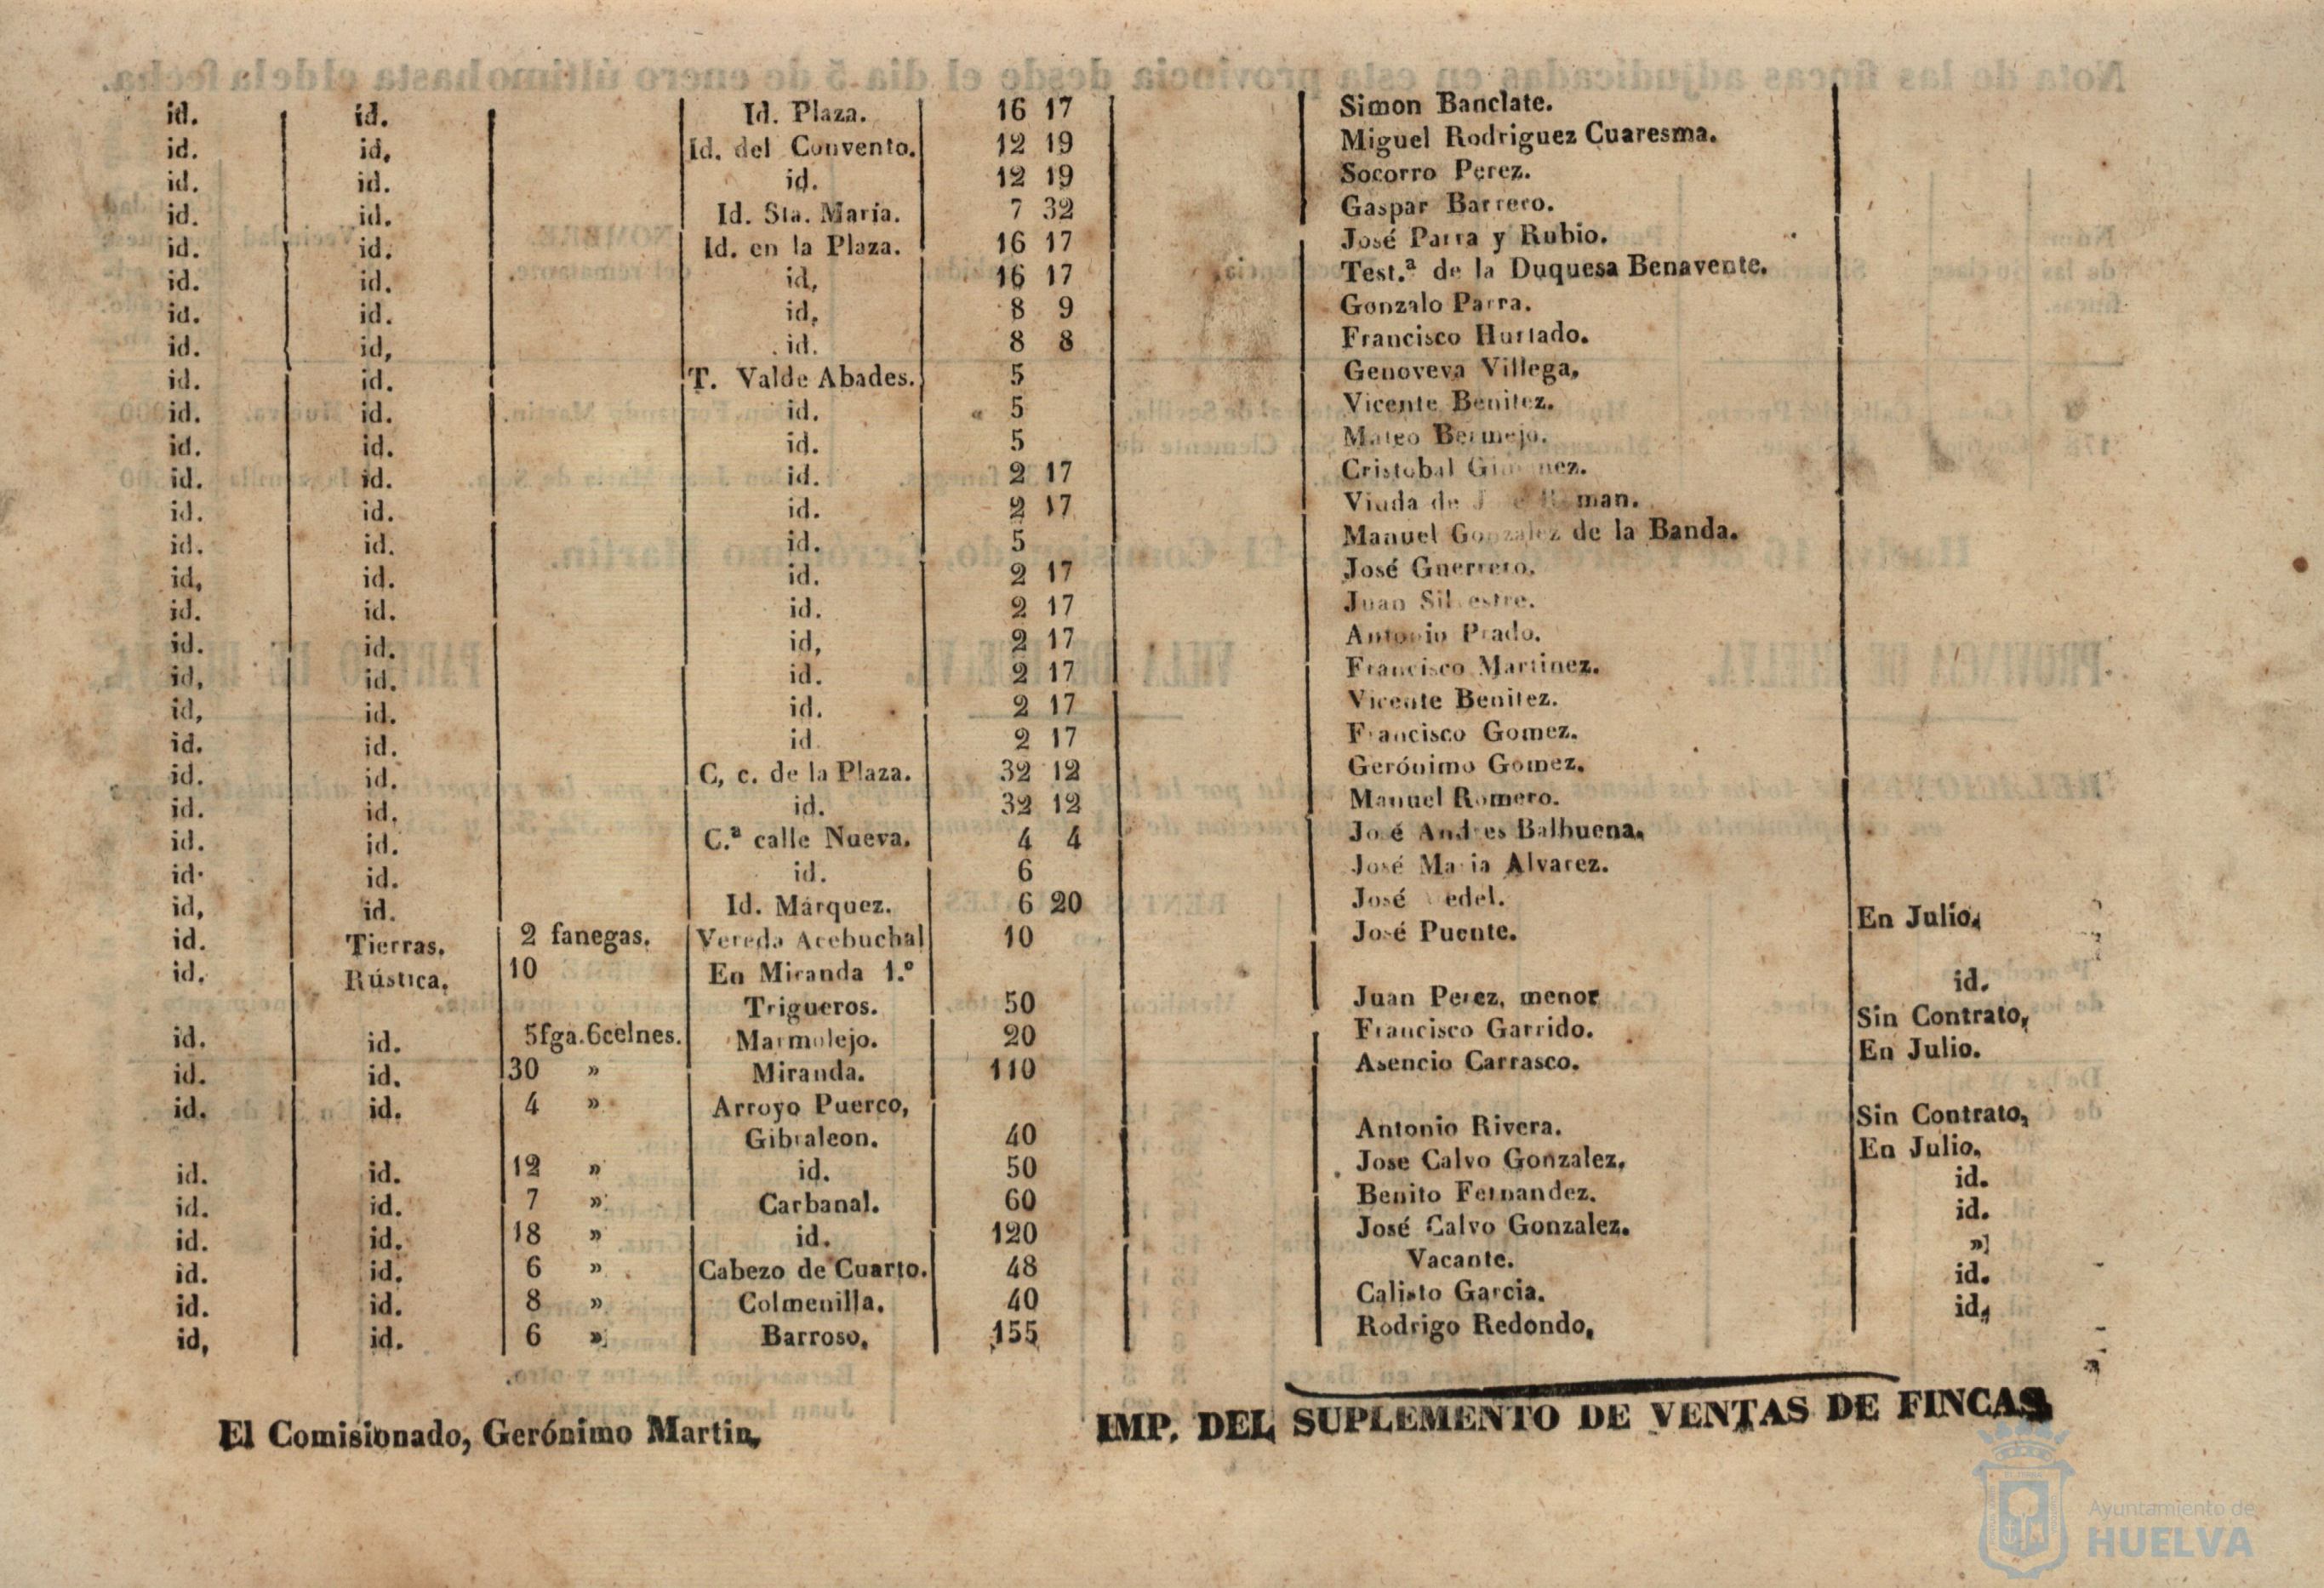 id. id. Id. Plaza. 16 17 Simon Banclate.
id. id, Id. del Convento. 12 19 Miguel Rodriguez Cuaresma.
id. id. id. 12 19 Socorro Perez.
id. id. Id. Sta. María. 7 32 Gaspar Barrero.
id. id. Id. en la Plaza. 16 17 José Parra y Rubio.
id. id. id, 16 17 Test.ª de la Duquesa Benavente.
id. id. id, 8 9 Gonzalo Parra.
id. id, id. 8 8 Francisco Hurtado.
id. id. T. Valde Abades. 5 Genoveva Villega,
id. id. id. 5 Vicente Benitez.
id. id. id. 5 Mateo Bermejo.
id. id. id. 2 17 Cristobal
id. id. id. 2 17 Viuda de
id. id. id. 5 Manuel Gonzalez de la Banda.
id, id. id. 2 17 José Guerrero.
id. id. id. 2 17 Juan Silvestre.
id. id. id, 2 17 Antonio Prado.
id, id. id. 2 17 Francisco Martinez.
id, id. id. 2 17 Vicente Benitez.
id. id. id 2 17 Francisco Gomez.
id. id. C, c. de la Plaza. 32 12 Gerónimo Gomez.
id. id, id. 32 12 Manuel Romero.
id. id. C.ª calle Nueva. 4 4 José Andres Balbuena.
id. id. id. 6 José Maria Alvarez.
id, id. Id. Márquez. 6 20 José
id. Tierras. 2 fanegas. Vereda Acebuchal 10 José Puente. En Julio.
id. Rústica. 10 En Miranda 1.º
Trigueros. 50 Juan Perez, menor id.
id. id. 5fga.6celnes. Marmolejo. 20 Francisco Garrido. Sin Contrato,
id. id. 30 » Miranda. 110 Asencio Carrasco. En Julio.
id. id. 4 » Arroyo Puerco,
Gibraleon. 40 Antonio Rivera. Sin Contrato,
id. id. 12 » id. 50 Jose Calvo Gonzalez, En Julio,
id. id. 7 » Carbanal. 60 Benito Fernandez. id.
id. id. 18 » id. 120 José Calvo Gonzalez. id.
id. id. 6 » Cabezo de Cuarto. 48 Vacante. »
id. id. 8 » Colmenilla. 40 Calisto Garcia. id.
id, id. 6 » Barroso, 155 Rodrigo Redondo, id,
El Comisionado, Gerónimo Martin,
IMP. DEL SUPLEMENTO DE VENTAS DE FINCAS
Ayuntamiento de
HUELVA